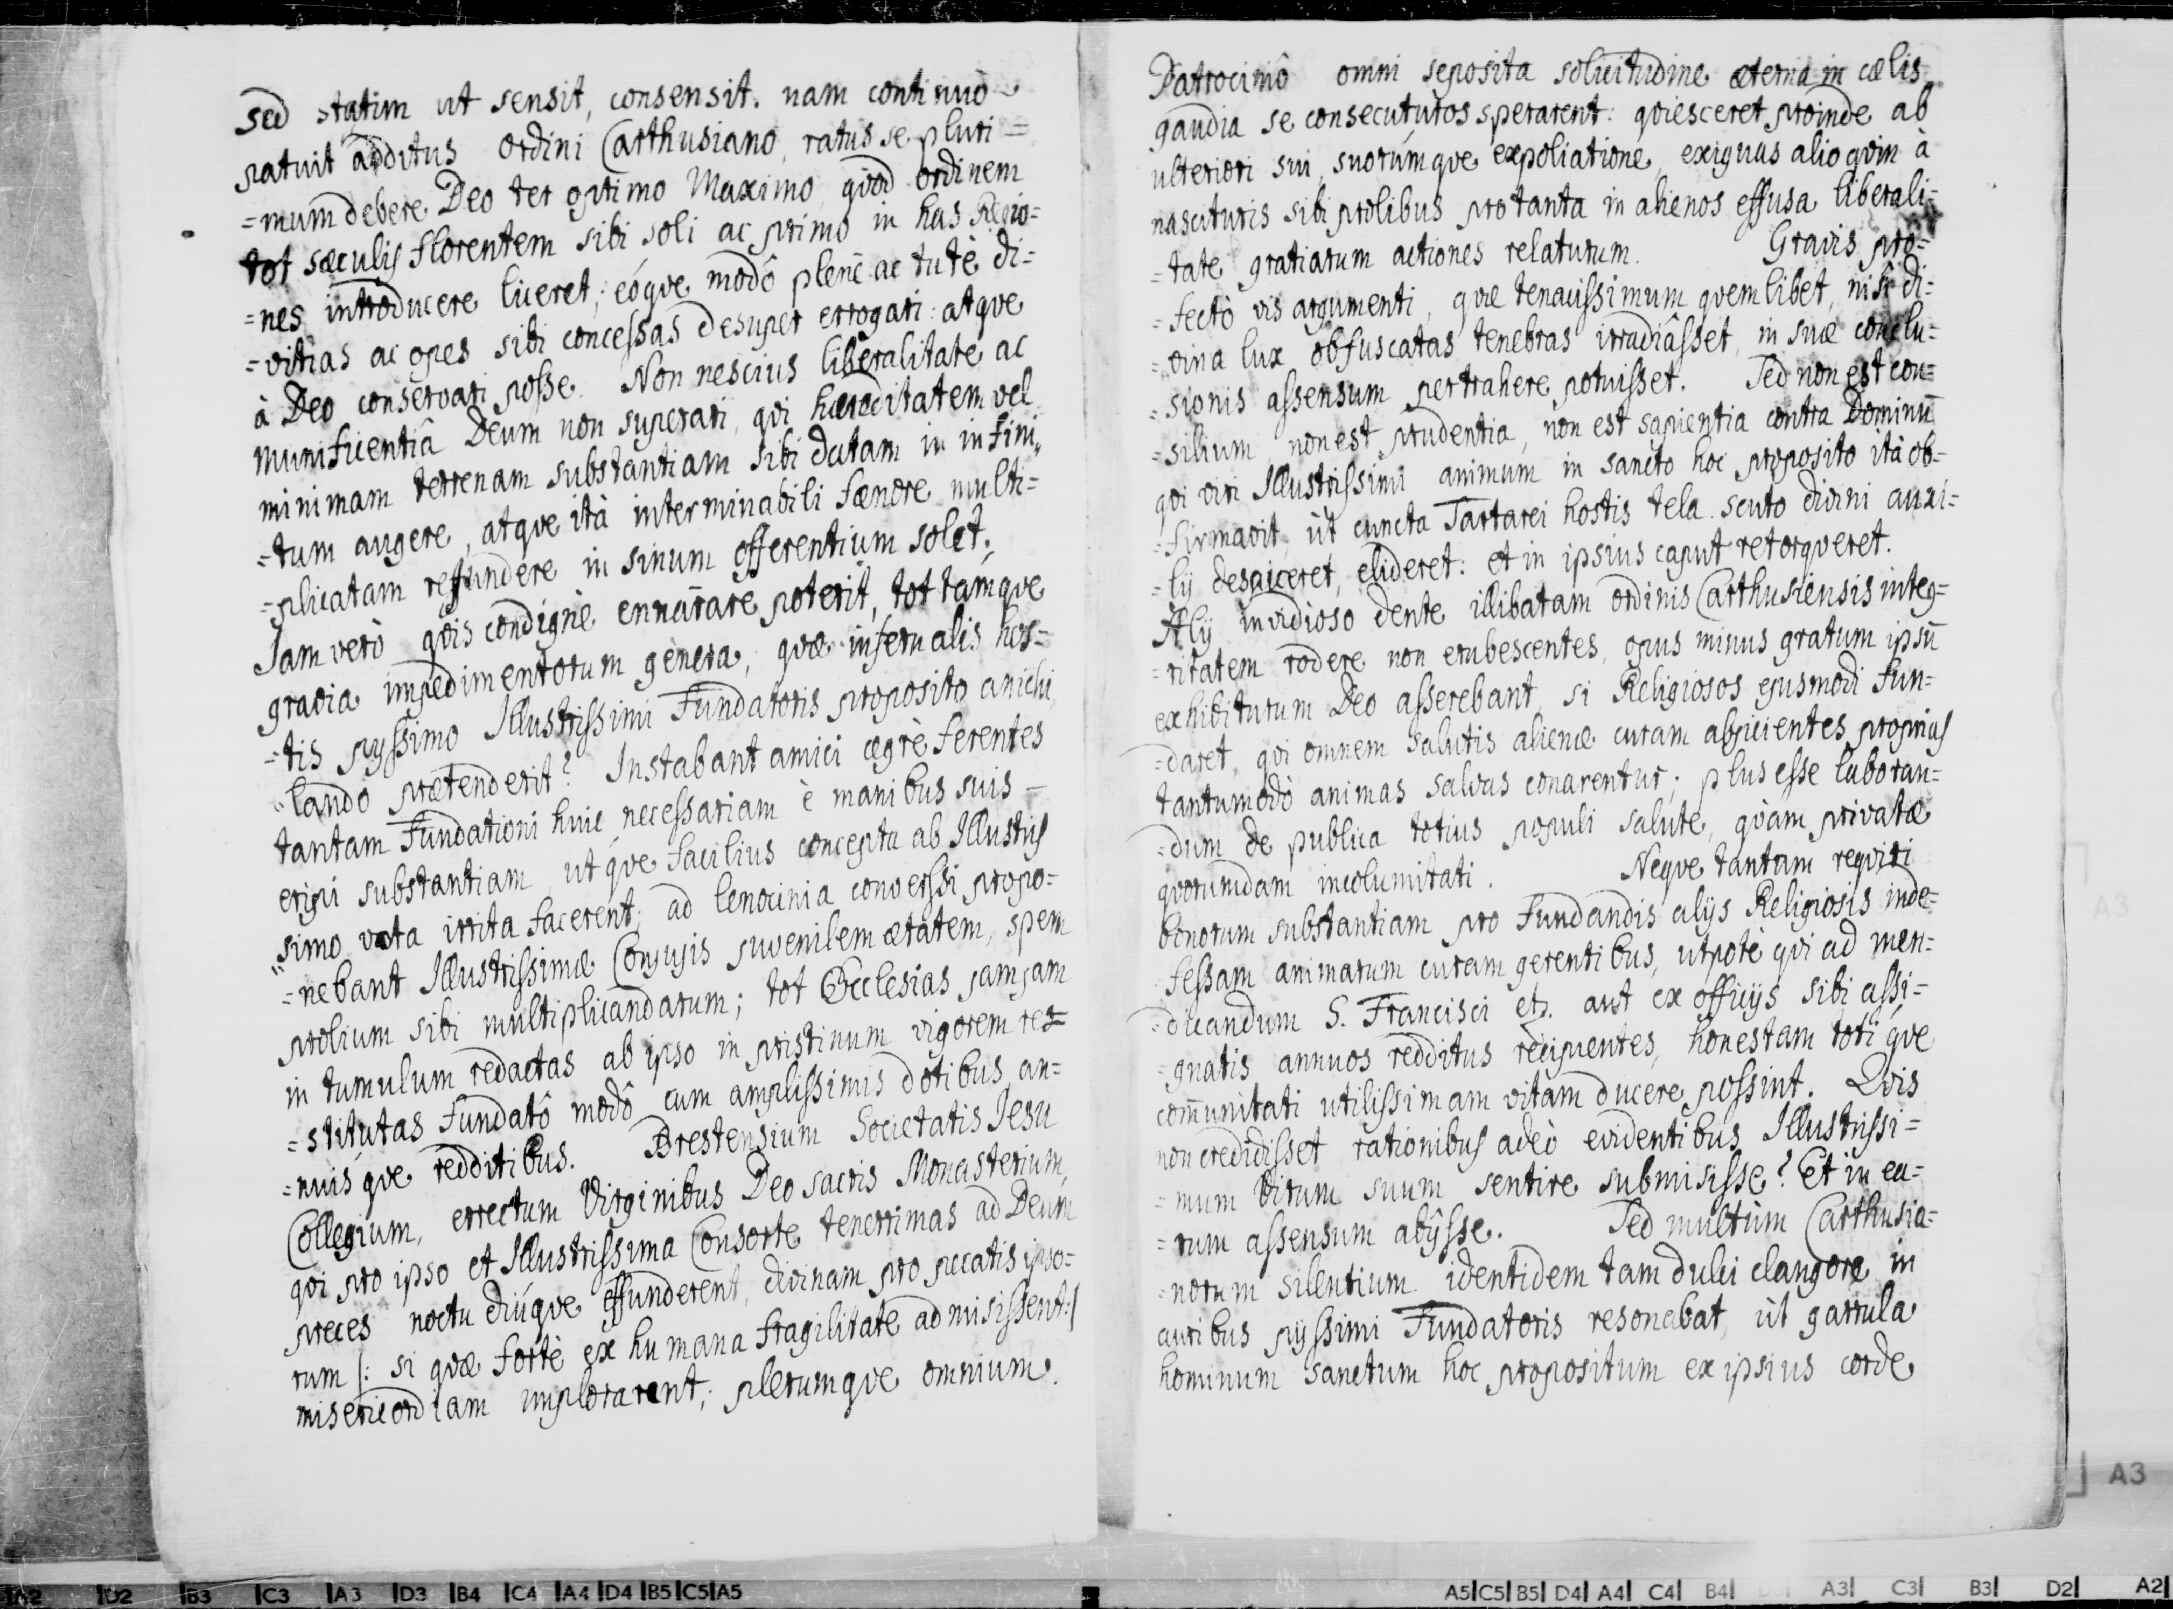 Sed statim ut sensit, consensit. nam continuò
patuit additus Ordini Carthusiano, ratus se pluri=
=mum debere Deo ter optimo Maximo, quod ordinem
tot sæculis florentem sibi soli ac primo in has Regio=
=nes introducere liceret; eóque modô plenè ac tutè di=
=vitias ac opes sibi concessas desuper errogari: atque
à Deo conservari posse. Non nescius liberalitate ac
munificentiâ Deum non superari, qui hæreditatem vel
minimam terrenam substantiam sibi datam in infini„
=tum augere, atque ità interminabili fænore multi=
=plicatam reffundere in sinum offerentium solet.
Jam verò quis condignè ennarare poterit, tot támque
gravia impedimentorum genera, quæ infernalis hos=
=tis pyssimo Illustrissimi Fundatoris proposito anichi
„lando prætenderit? Instabant amici ægrè ferentes
tantam Fundationi huic necessariam è manibus suis =
eripi substantiam, utque facilius concepta ab Illustris
„simo vota irrita facerent; ad lenocinia conversi propo=
=nebant Illustrissimæ Conjugis juvenilem ætatem, spem
prolium sibi multiplicandarum; tot Ecclesias jamjam
in tumulum redactas ab ipso in pristinum vigorem res=
=stitutas fundatô modô cum amplissimis dotibus an=
=nuisque redditibus. Brestensium Societatis Jesu
Collegium, errectum Virginibus Deo sacris Monasterium,
qui pro ipso et Illustrissima Consorte tenerrimas ad Deum
preces noctu diúque effunderent, divinam pro peccatis ipso=
rum /: si quæ fortè ex humana fragilitate admisissent:/
misericordiam implorarent; plerumque omnium.
Patrociniô omni seposita solicitudine æterna in cælis
gaudia se consecuturos sperarent: quiesceret proinde ab
ulteriori sui, suorúmque expoliatione, exiguas alioquin à
nascituris sibi prolibus pro tanta in alienos effusa liberali=
=tate gratiarum actiones relaturum. Gravis pro=
=fectò vis argumenti, quæ tenacissimum quemlibet, nisi di=
=vina lux obfuscatas tenebras irradiâsset, in suæ conclu=
=sionis assensum pertrahere potuisset. Sed non est con=
=silium, non est prudentia, non est sapientia contra Dominū
qui viri Illustrissimi animum in sancto hoc proposito ità ob=
=firmavit, ùt cuncta Tartarei hostis tela scuto divini auxi=
=lij despiceret, elideret: et in ipsius caput retorqueret.
Alij invidioso dente illibatam ordinis Carthusiensis integ=
=ritatem rodere non erubescentes, opus minus gratum ipsū
exhibiturum Deo asserebant, si Religiosos ejusmodi fun=
=daret, qui omnem salutis alienæ curam abjicientes proprias
tantumodò animas salvas conarentur; plus esse laboran=
=dum de publica totius populi salute, quàm privatæ
quorumdam incolumitati. Neque tantam requiri
bonorum substantiam pro Fundandis alijs Religiosis inde=
fessam animarum curam gerentibus, utpotè qui ad men=
=dicandum S. Francisci etz. aut ex officijs sibi assi=
=gnatis annuos redditus recipientes, honestam totíque
com̄unitati utilissimam vitam ducere possint. Quis
non credidisset rationibus adeò evidentibus Illustrissi=
=mum Virum suum sentire submisisse? Et in ea=
=rum assensum abÿsse. Sed multùm Carthusia=
=norum silentium identidem tam dulci clangore in
auribus pijssimi Fundatoris resonabat, ùt garrula
hominum sanctum hoc propositum ex ipsius corde
A3
A3
A2 D2 B3 C3 A3 D3 B4 C4 A4 D4 B5 C5 A5
A5 C5 B5 D4 A4 C4 B4 A3 C3 B3 D2 A2